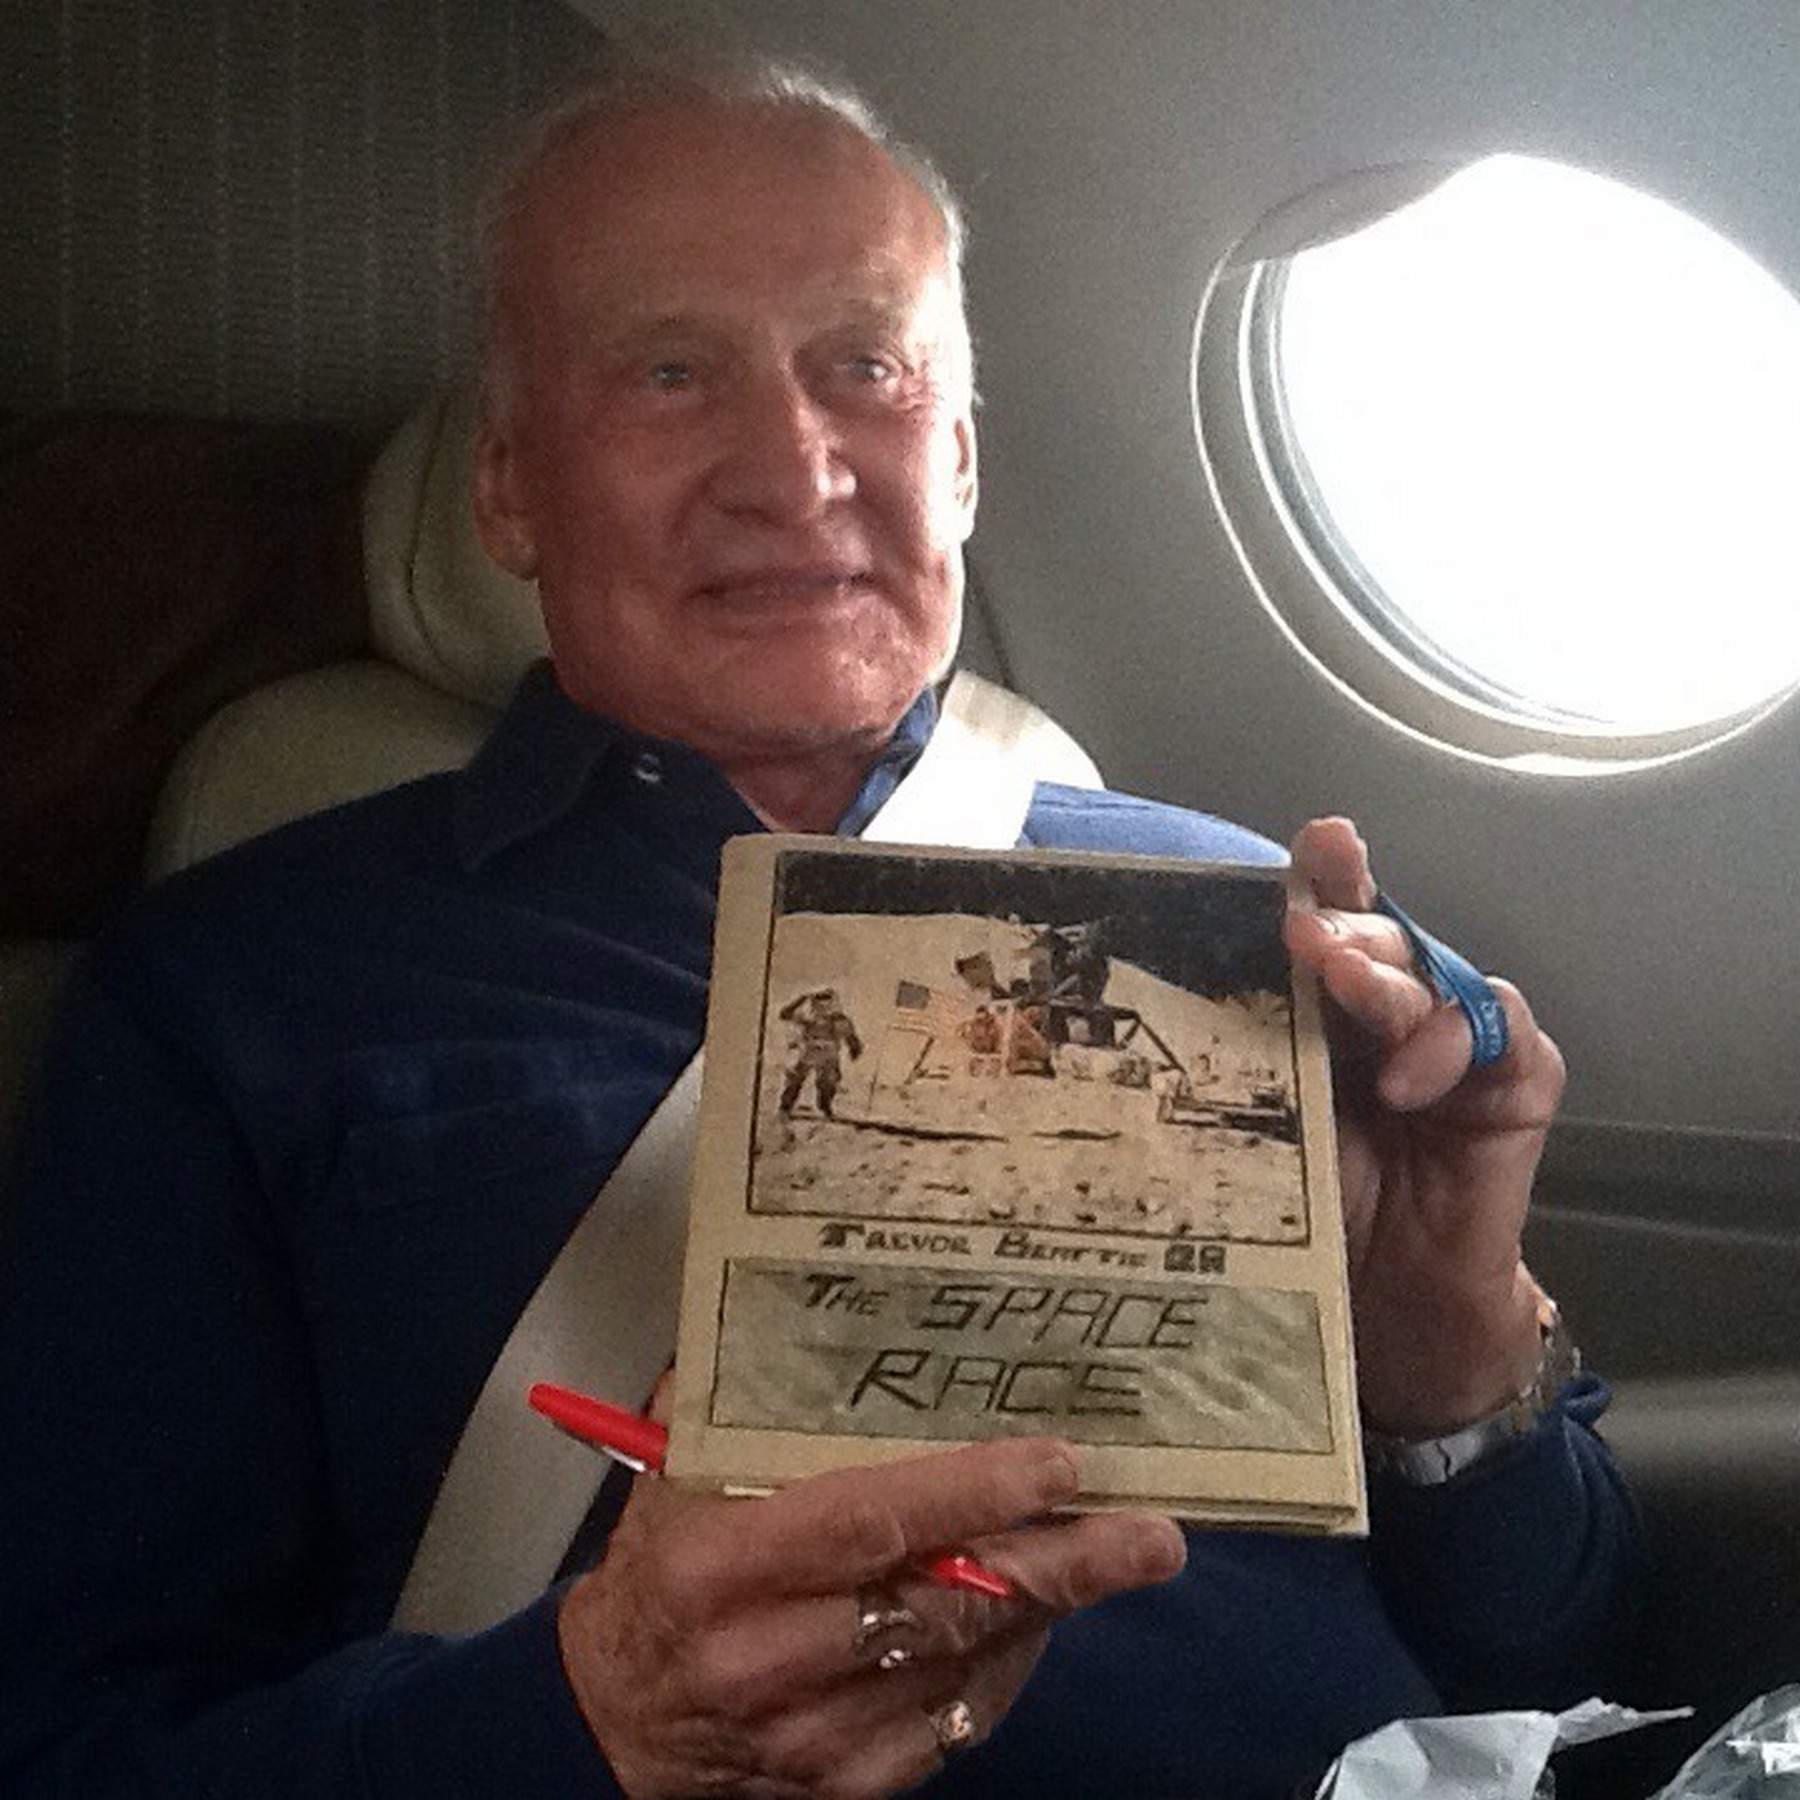 TREVOR BEATTIE 2R
THE SPACE
RACE